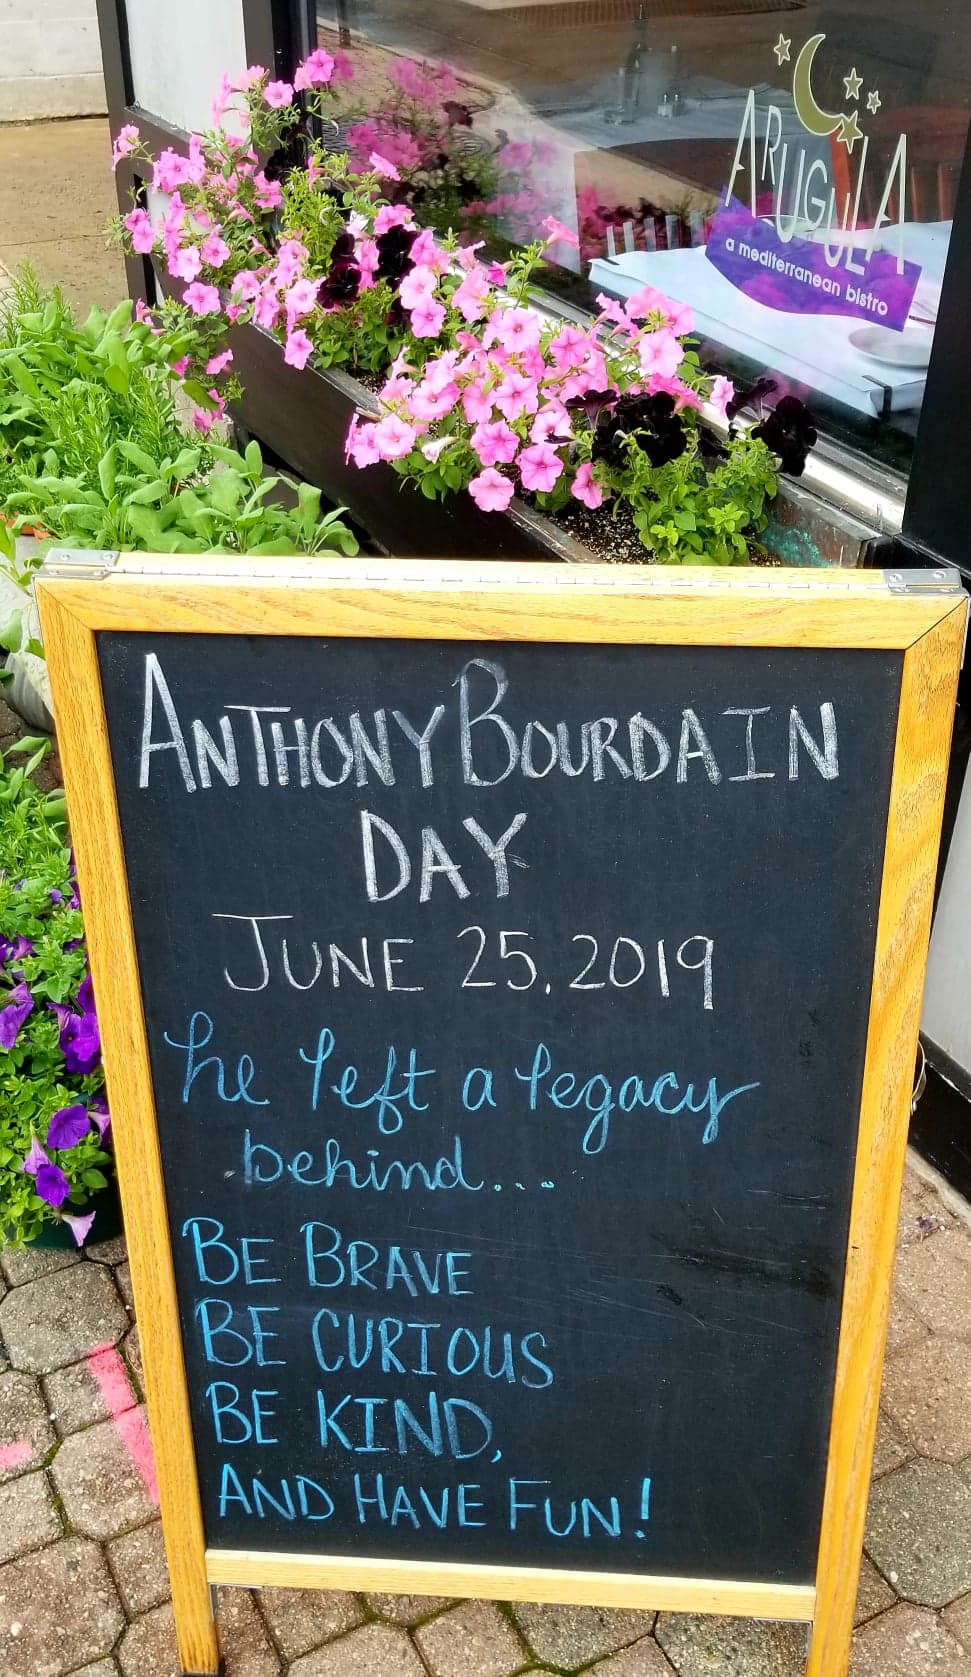 ARUGULA
a mediterranean bistro
ANTHONY BOURDAIN
DAY
JUNE 25, 2019
he left a legacy
behind...
BE BRAVE
BE CURIOUS
BE KIND,
AND HAVE FUN!